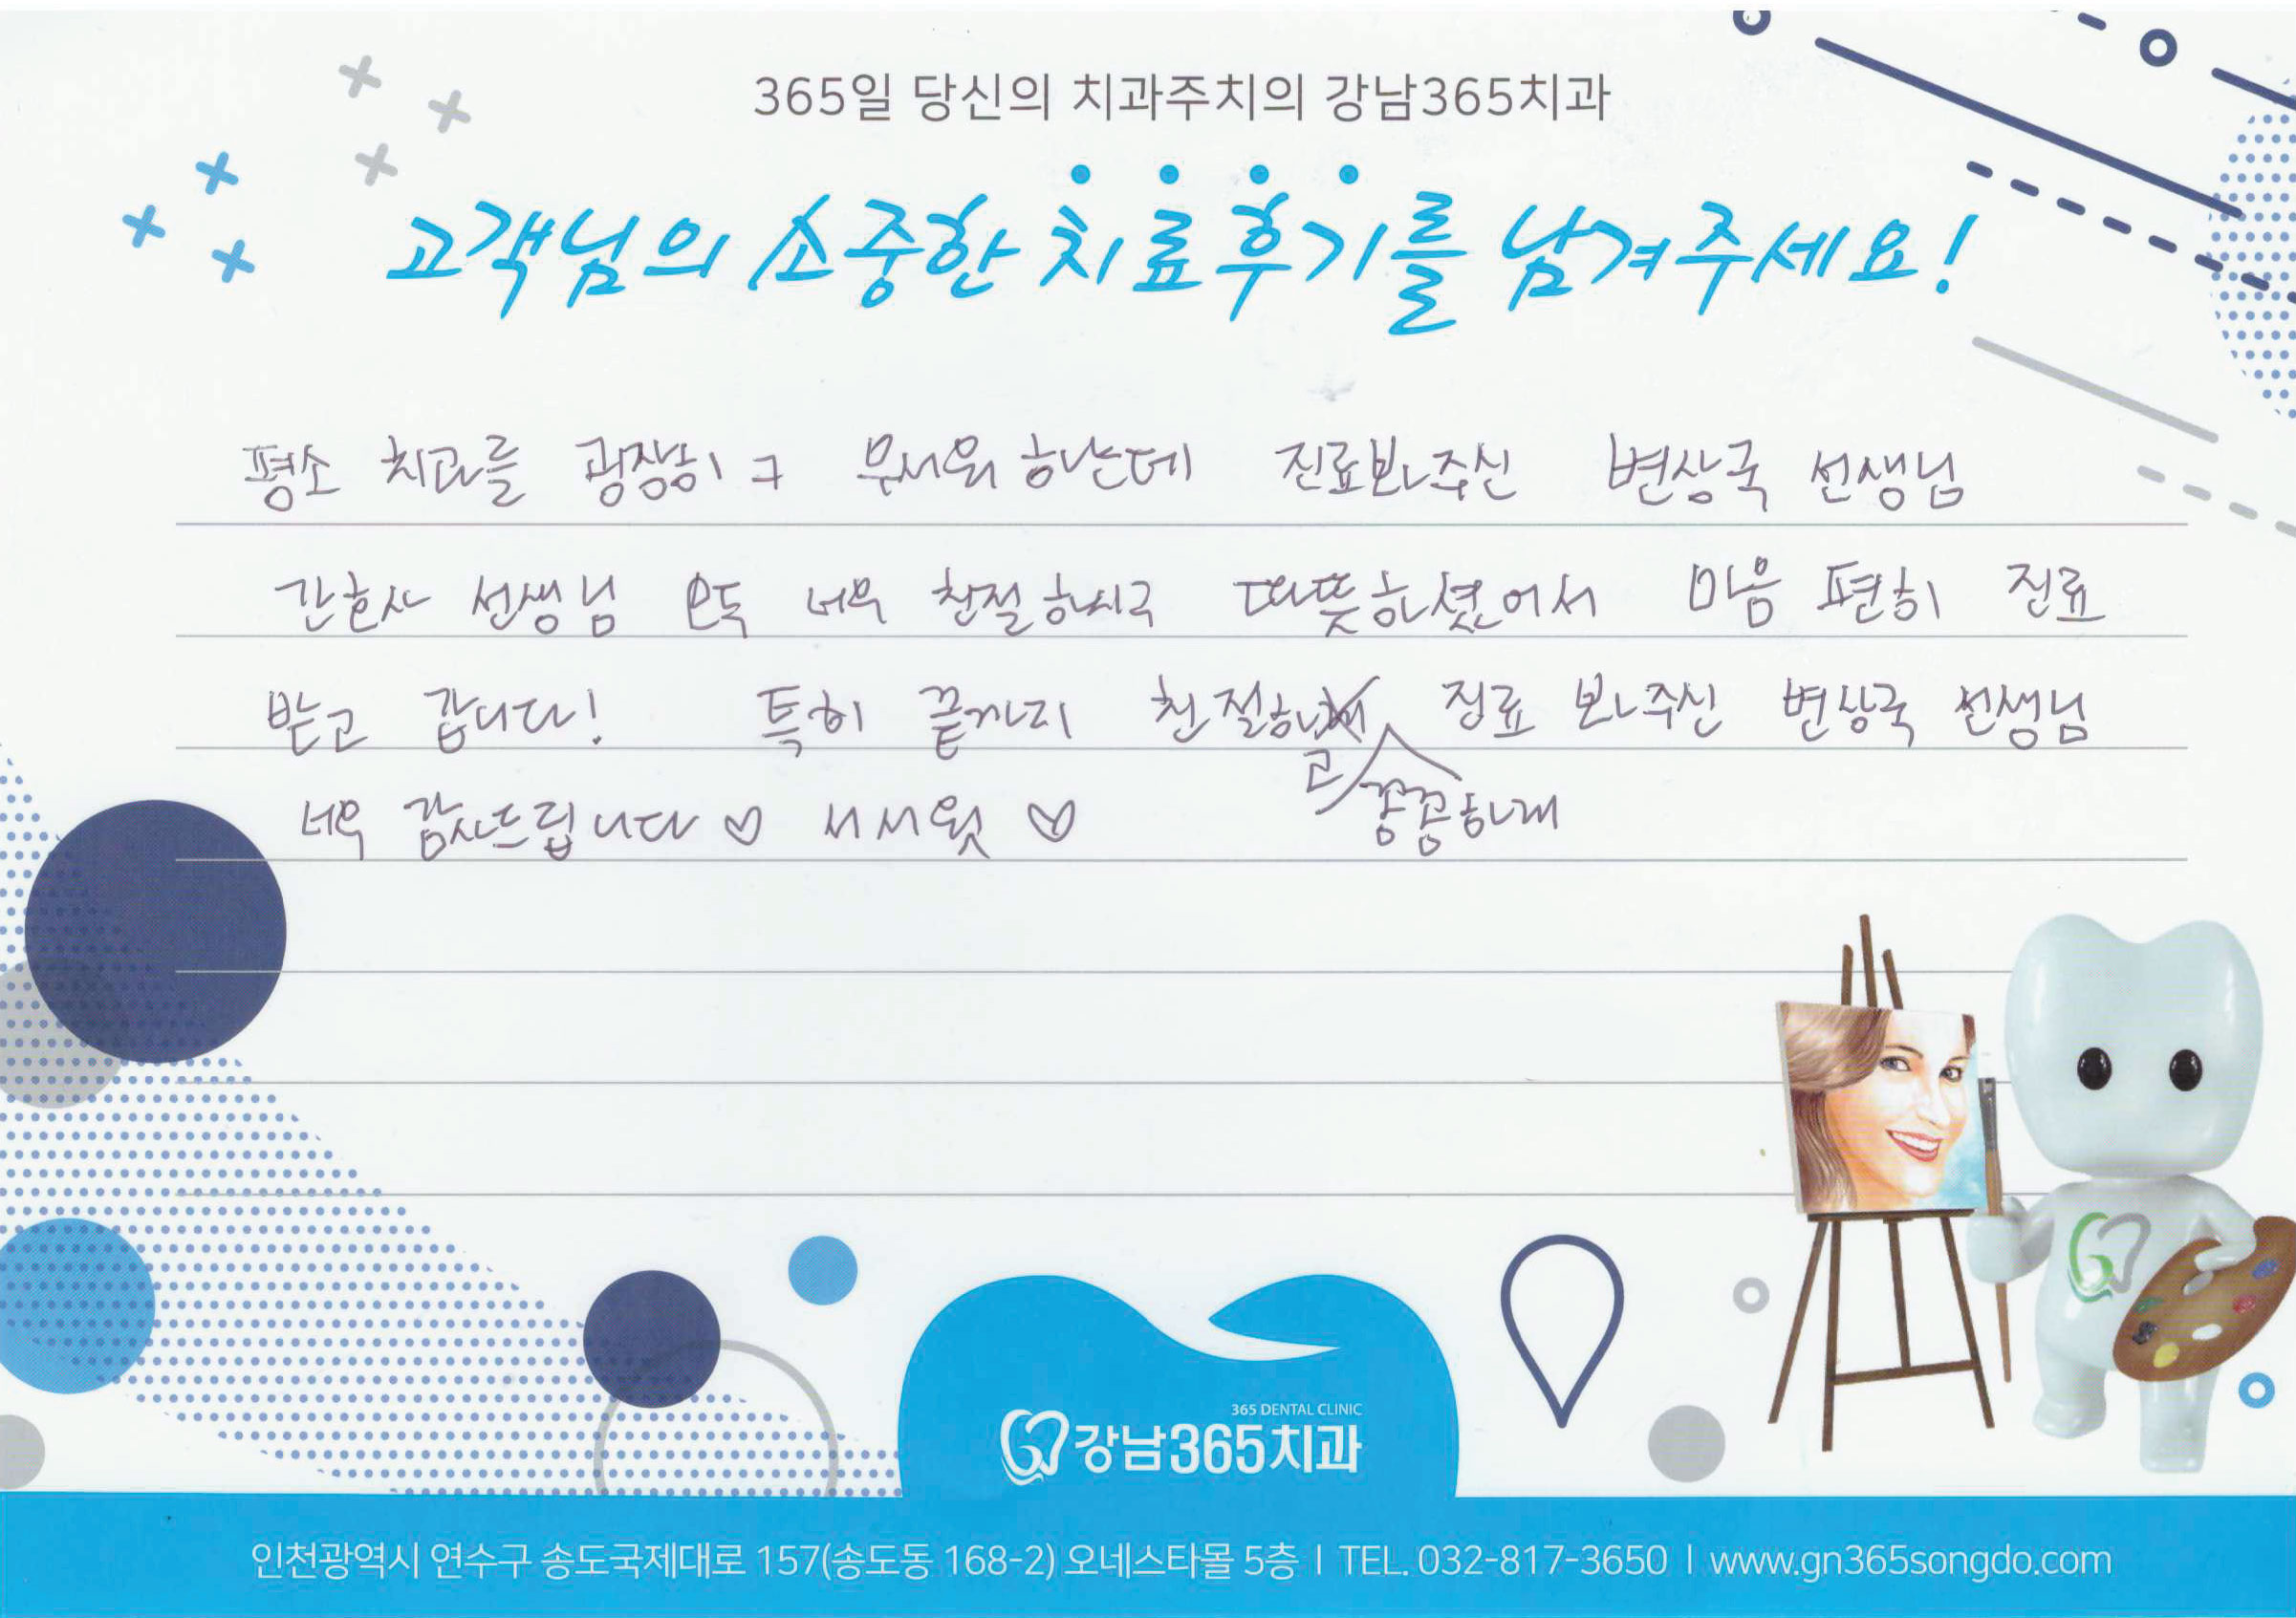 365일 당신의 치과주치의 강남365치과
고객님의 소중한 치료후기를 남겨주세요!
평소 치과를 굉장히 무서워 하는데 진료봐주신 변상국 선생님
간호사 선생님 모두 너무 친절하시고 따뜻하셨어서 마음 편히 진료
받고 갑니다! 특히 끝까지 친절하 진료 봐주신 변상국 선생님
고 꼼꼼하게
너무 감사드립니다 ♡ ♡
365 DENTAL CLINIC
강남365치과
인천광역시 연수구 송도국제대로 157(송도동 168-2) 오네스타몰 5층 | TEL. 032-817-3650 | www.gn365songdo.com